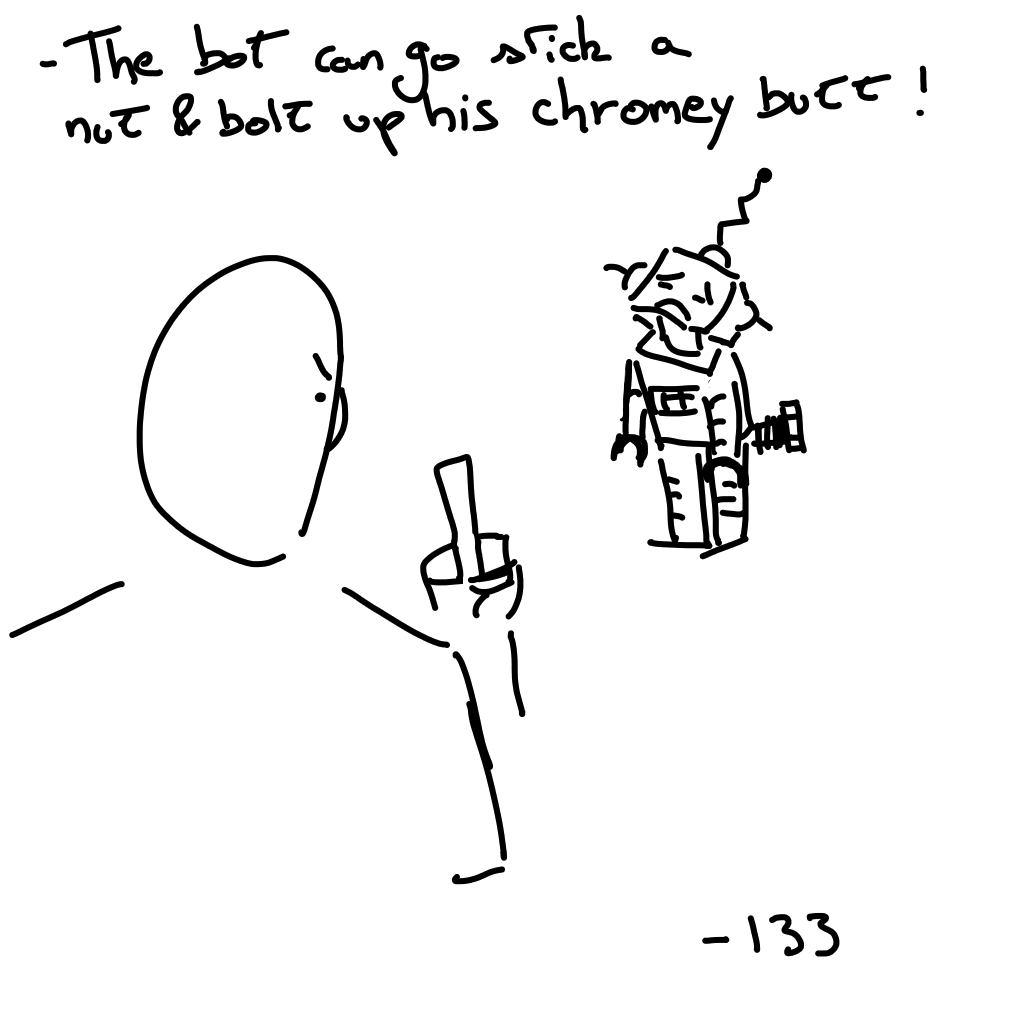 - The bot can go stick a
nut & bolt up his chromey butt!
- 133